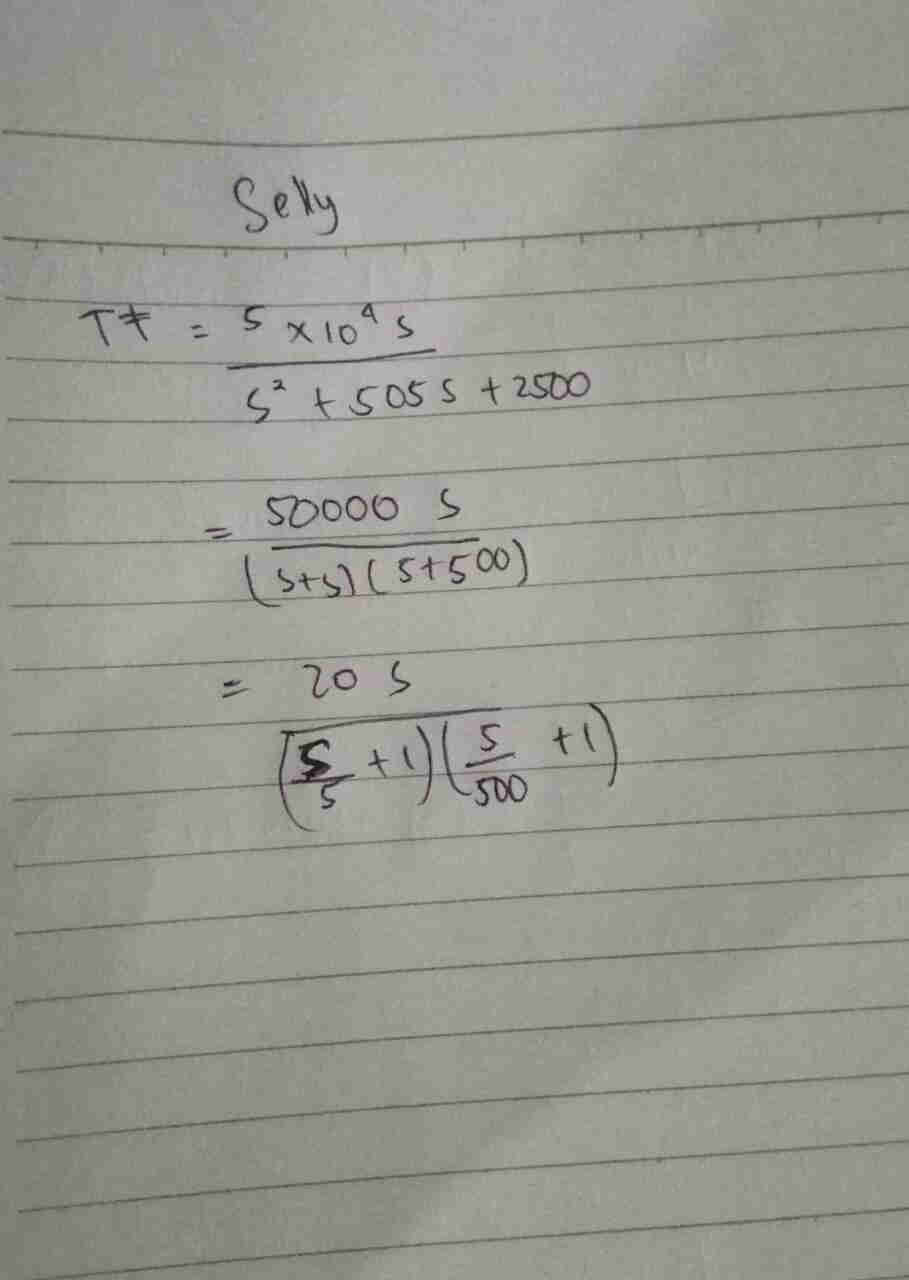 Selly
TF = 5 x 10⁴ s
s² + 505 s + 2500
= 50000 s
(s+5)(s+500)
= 20 s
(s/5 + 1)(s/500 + 1)